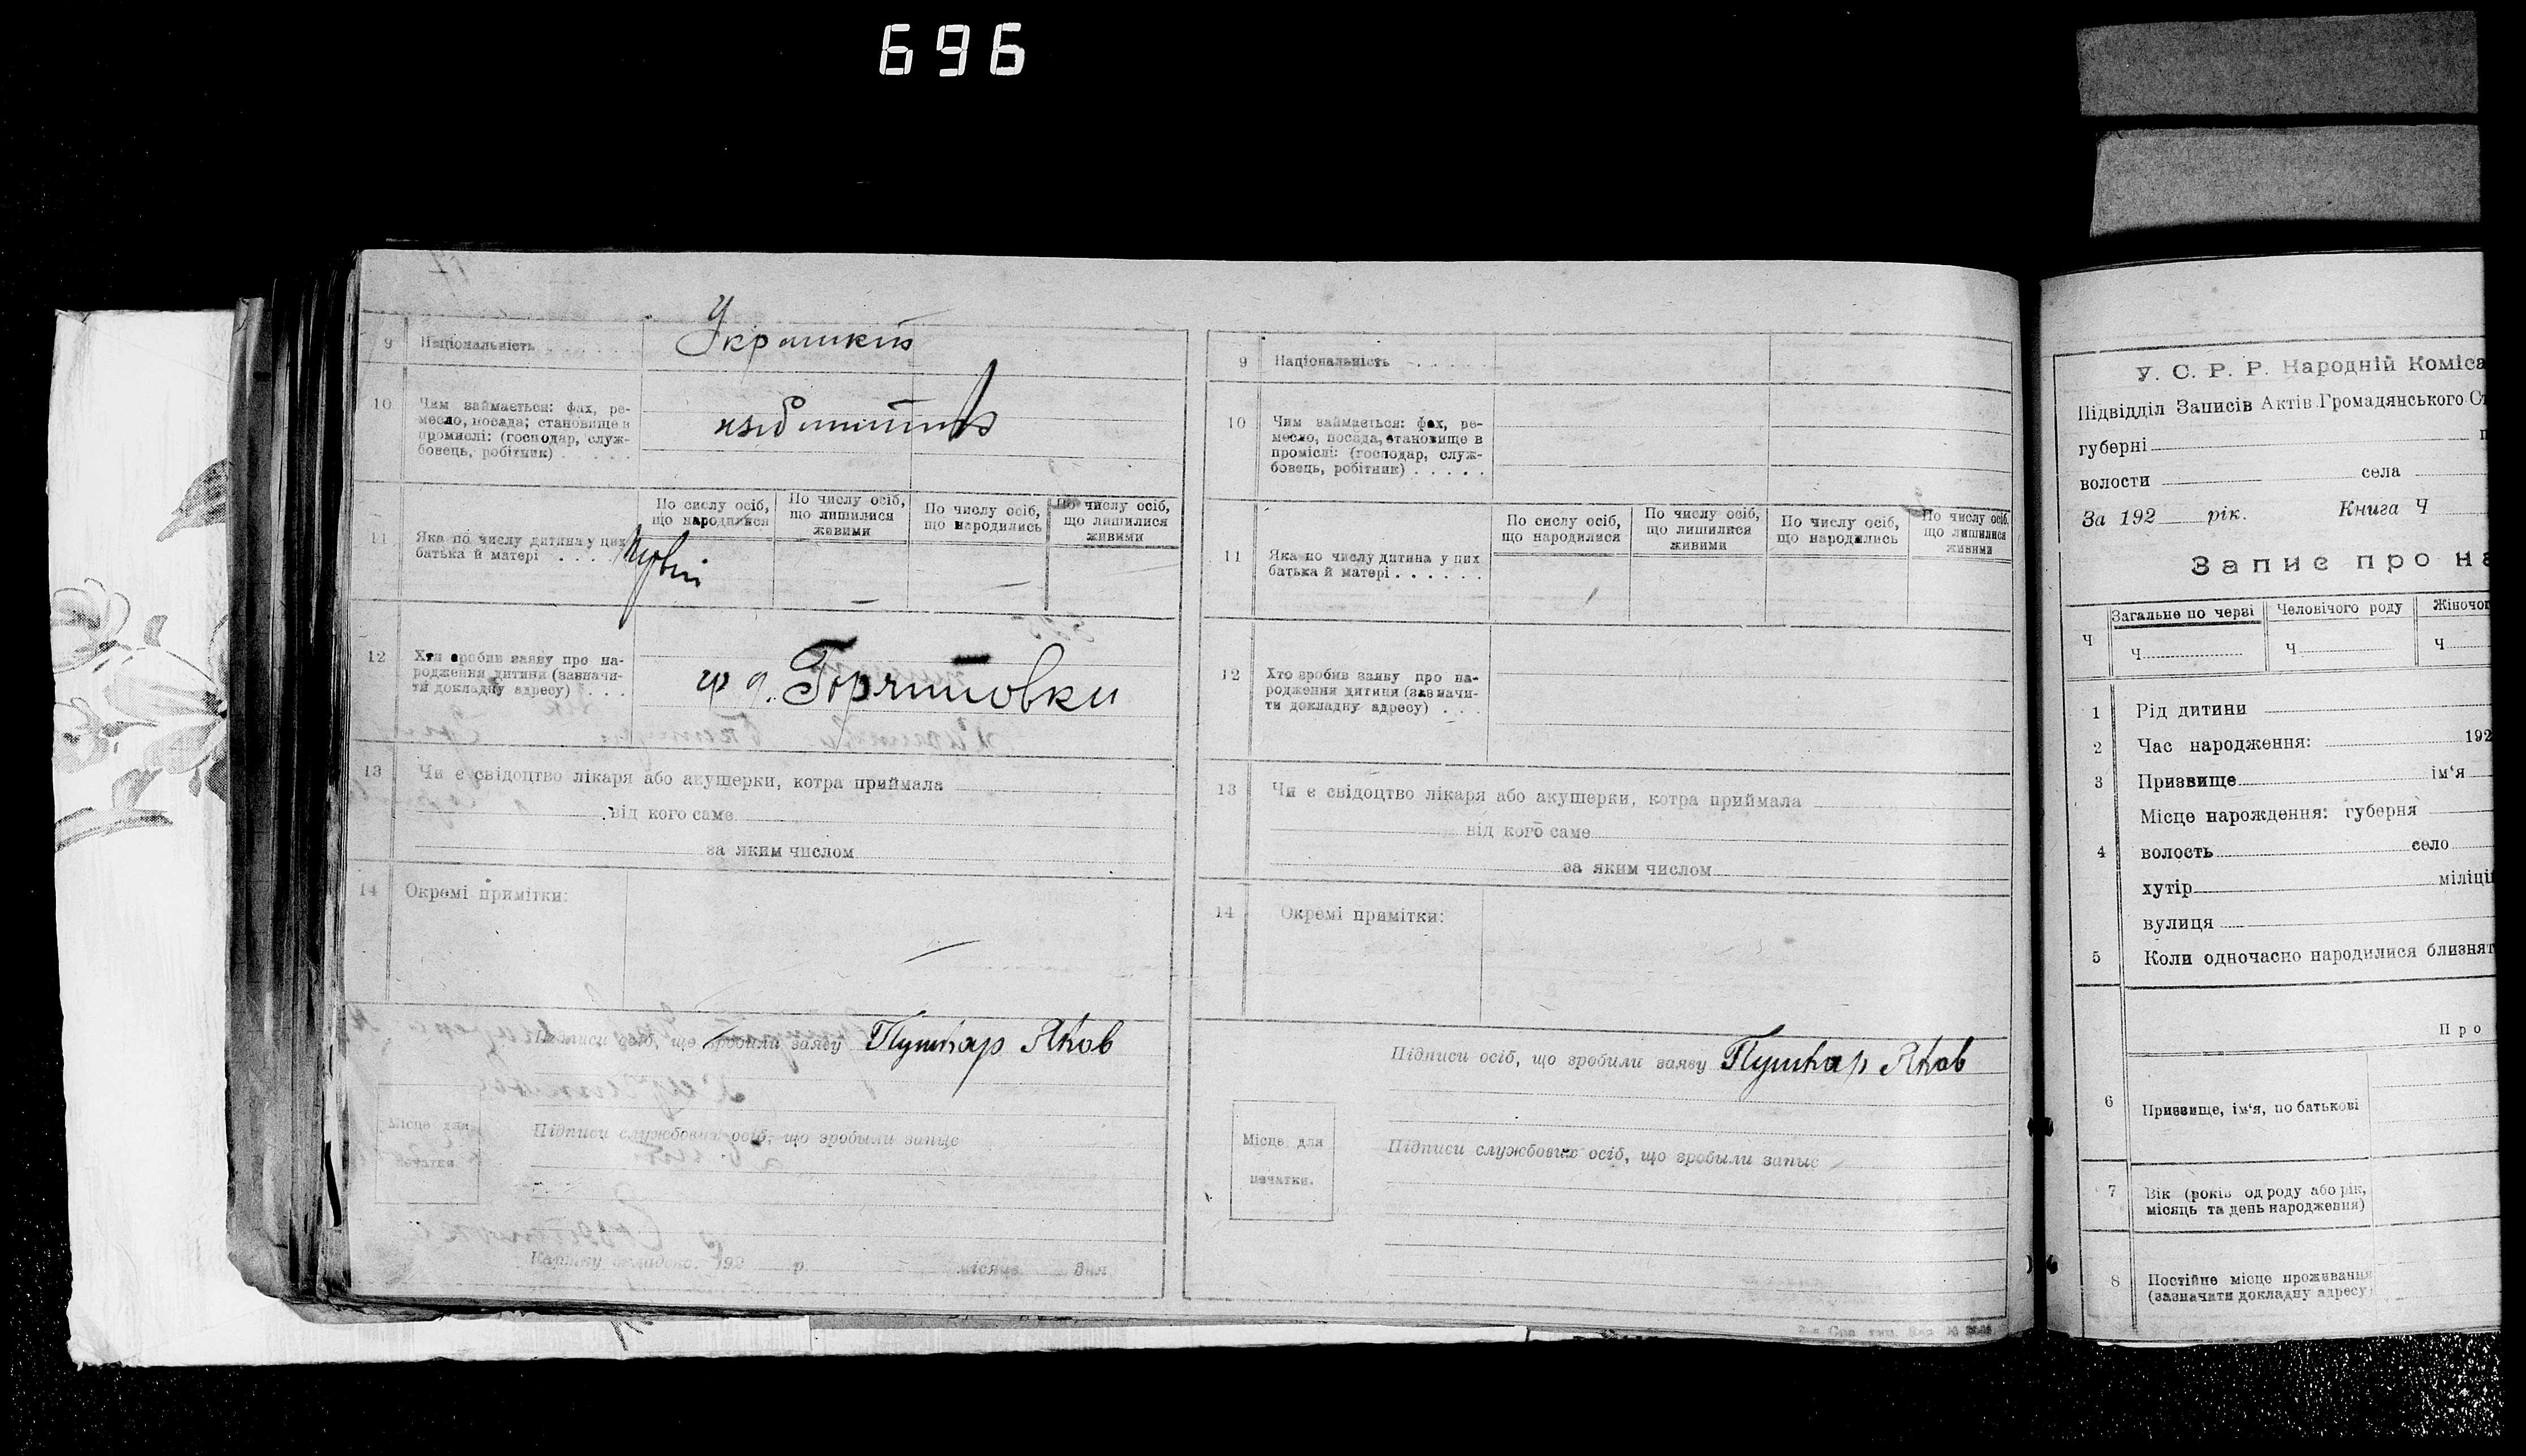 696
9 Національність
Украінкій
10 Чим займається: фах, ре-
месло, посада; становище в
промислі: (господар, служ-
бовець, робітник)
11 Яка по числу дитина у цих
батька й матері
По сислу осіб,
що народилися
По числу осіб,
що лишилися
живими
По числу осіб,
що народились
По числу осіб,
що лишилися
живими
12 Хто зробив заяву про на-
родження дитини (зазначи-
ти докладну адресу)
13 Чи є свідоцтво лікаря або акушерки, котра приймала
від кого саме
за яким числом
14 Окремі примітки:
Підписи осіб, що зробили заяву Пушкар Яков
Місце для
печатки
Підписи службових осіб, що зробыли запис
Картку складено: 192 р. місяця дня
9 Національність
10 Чим займається: фах, ре-
месло, посада, становище в
проміслі: (господар, служ-
бовець, робітник)
11 Яка по числу дитина у цих
батька й матері
По сислу осіб,
що народилися
По числу осіб,
що лишилися
живими
По числу осіб,
що народились
По числу осіб,
що лишилися
живими
12 Хто зробив заяву про на-
родження дитини (зазначи-
ти докладну адресу)
13 Чи є свідоцтво лікаря або акушерки, котра приймала
від кого саме
за яким числом
14 Окремі примітки:
Підписи осіб, що зробили заяву Пушкар Яков
Місце для
печатки.
Підписи службових осіб, що зробыли запис
У. С. Р. Р. Народній Коміса
Підвідділ Записів Актів Громадянського Ст
губерні п
волости села
За 192 рік. Книга Ч
Запис про на
Ч Загальне по черзі Человічого роду Жіночог
Ч Ч Ч
1 Рід дитини
2 Час народження: 192
3 Призвище ім‘я
Місце нарождення: губерня
4 волость село
хутір міліції
вулиця
5 Коли одночасно народилися близнят
Про
6 Призвище, ім‘я, по батькові
7 Вік (років од роду або рік,
місяць та день народження)
8 Постійне місце проживання
(зазначити докладну адресу)